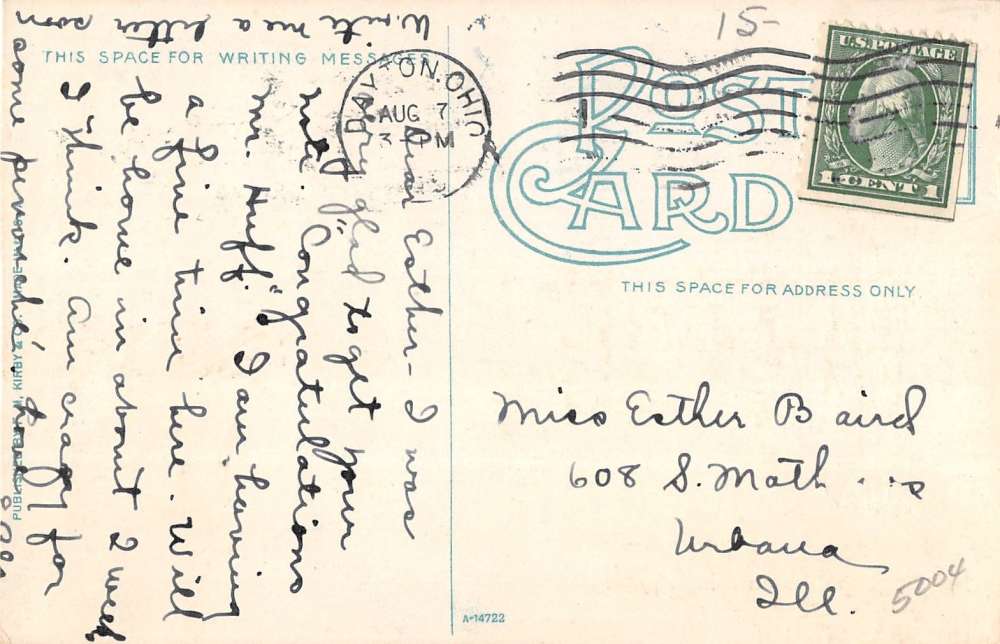 15-
THIS SPACE FOR WRITING MESSAGES
DAYTON, OHIO
AUG 7
3 PM
POST
CARD
U.S. POSTAGE
1 CENT 1
THIS SPACE FOR ADDRESS ONLY.
Dear Esther - I was
very glad to get your
note. "Congratulations
Mr. Huff." I am having
a fine time here. Will
be home in about 2 weeks
I think. Am crazy for
some
Write me a letter soon
Miss Esther Baird
608 S. Math
Urbana
Ill.
5004
A-14722